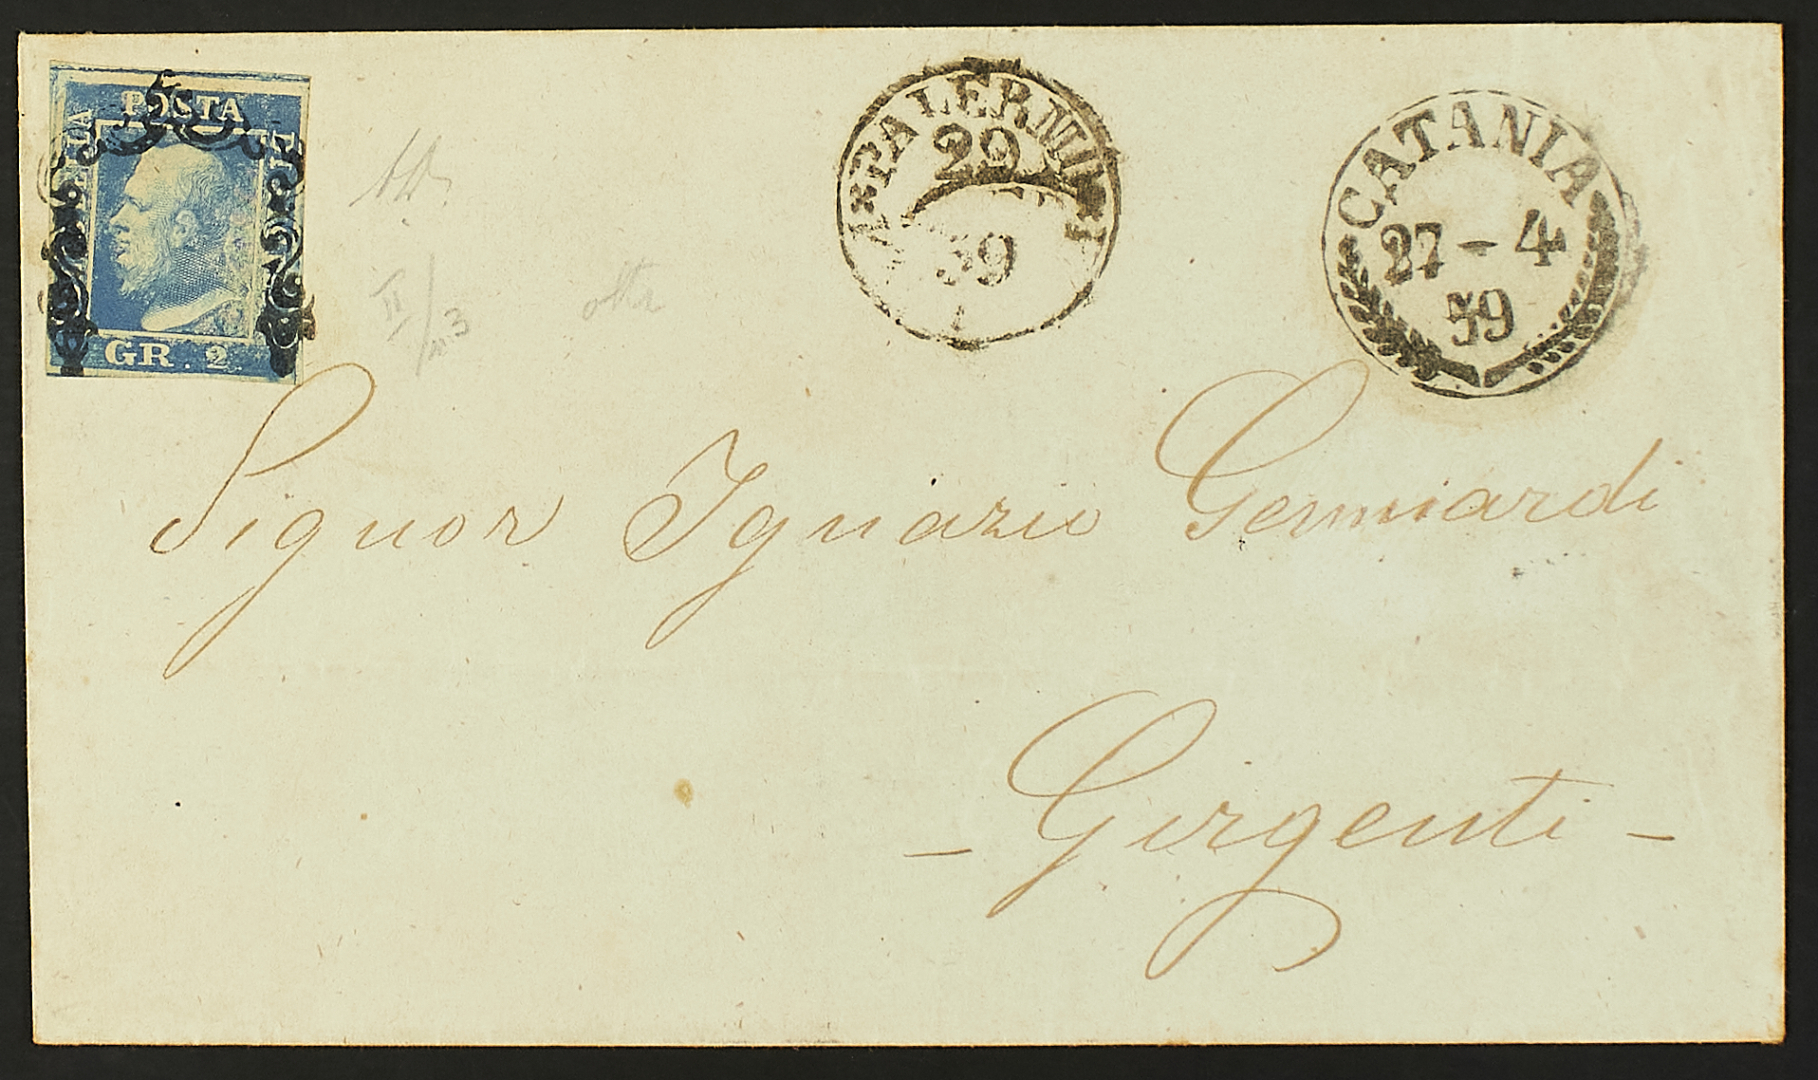 POSTA
GR. 2.
29
59
CATANIA
27 - 4
59
II/n.3
Signor Ignazio Genuardi
- Girgenti -